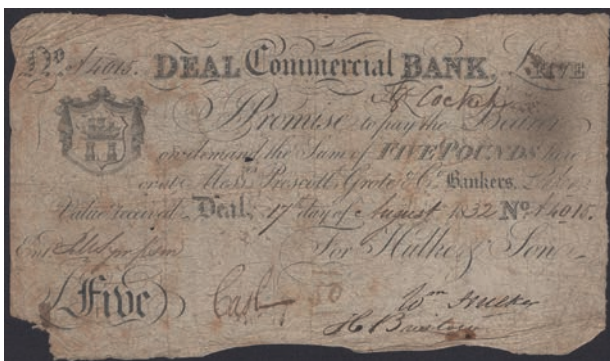 No. A4015. DEAL Commercial BANK. FIVE
I Promise to pay the Bearer
on demand the Sum of FIVE POUNDS here
or at Messrs. Prescott Grote & Co. Bankers,
Value received. Deal, 17 day of August 1832 No. A4015.
For Hulke & Son
Five